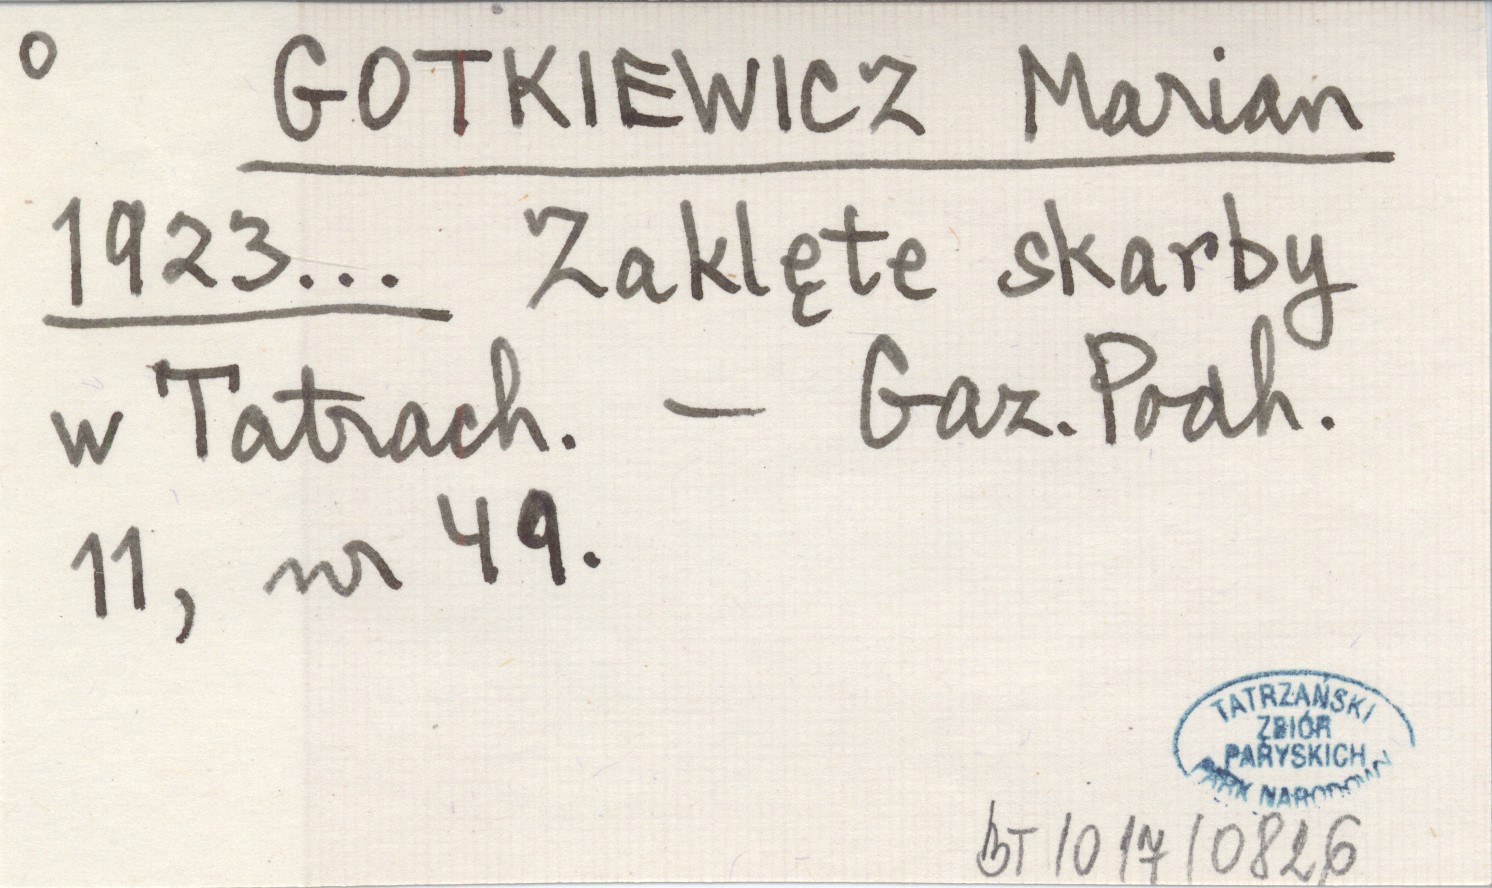 o GOTKIEWICZ Marian
1923... Zaklęte skarby
w Tatrach. — Gaz. Podh.
11, nr 49.
TATRZAŃSKI
ZBIÓR
PARYSKICH
PARK NARODOWY
BT/017/0826